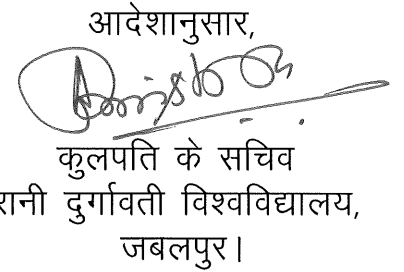 आदेशानुसार,
कुलपति के सचिव
रानी दुर्गावती विश्वविद्यालय,
जबलपुर।